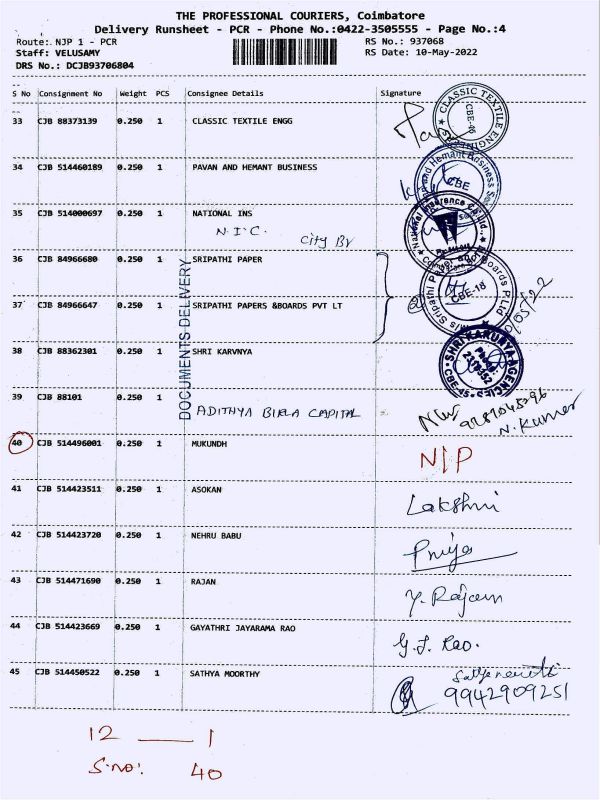 THE PROFESSIONAL COURIERS, Coimbatore
Delivery Runsheet - PCR - Phone No.:0422-3505555 - Page No.:4
Route: NJP 1 - PCR RS No.: 937068
Staff: VELUSAMY RS Date: 10-May-2022
DRS No.: DCJB93706804
S No Consignment No Weight PCS Consignee Details Signature
33 CJB 88373139 0.250 1 CLASSIC TEXTILE ENGG
CLASSIC TEXTILE ENGI
CBE-46
34 CJB 514460189 0.250 1 PAVAN AND HEMANT BUSINESS
and Hemant Business
CBE
35 CJB 514000697 0.250 1 NATIONAL INS
N.I.C. City Br
National Insurance Co. Ltd.
36 CJB 84966680 0.250 1 SRIPATHI PAPER
M/s Sripathi Paper and Boards P Ltd
CBE-18
37 CJB 84966647 0.250 1 SRIPATHI PAPERS &BOARDS PVT LT
DOCUMENTS DELIVERY
38 CJB 88362301 0.250 1 SHRI KARVNYA
SHRI KARUNYA AGENCIES
CBE-45
39 CJB 88101 0.250 1
ADITHYA BIRLA CAPITAL
9287045296
N. Kumar
40 CJB 514496001 0.250 1 MUKUNDH N/P
41 CJB 514423511 0.250 1 ASOKAN Lakshmi
42 CJB 514423720 0.250 1 NEHRU BABU Priya
43 CJB 514471690 0.250 1 RAJAN Y. Rajam
44 CJB 514423669 0.250 1 GAYATHRI JAYARAMA RAO G.J. Rao.
45 CJB 514450522 0.250 1 SATHYA MOORTHY
9942909251
12 — 1
S.no: 40